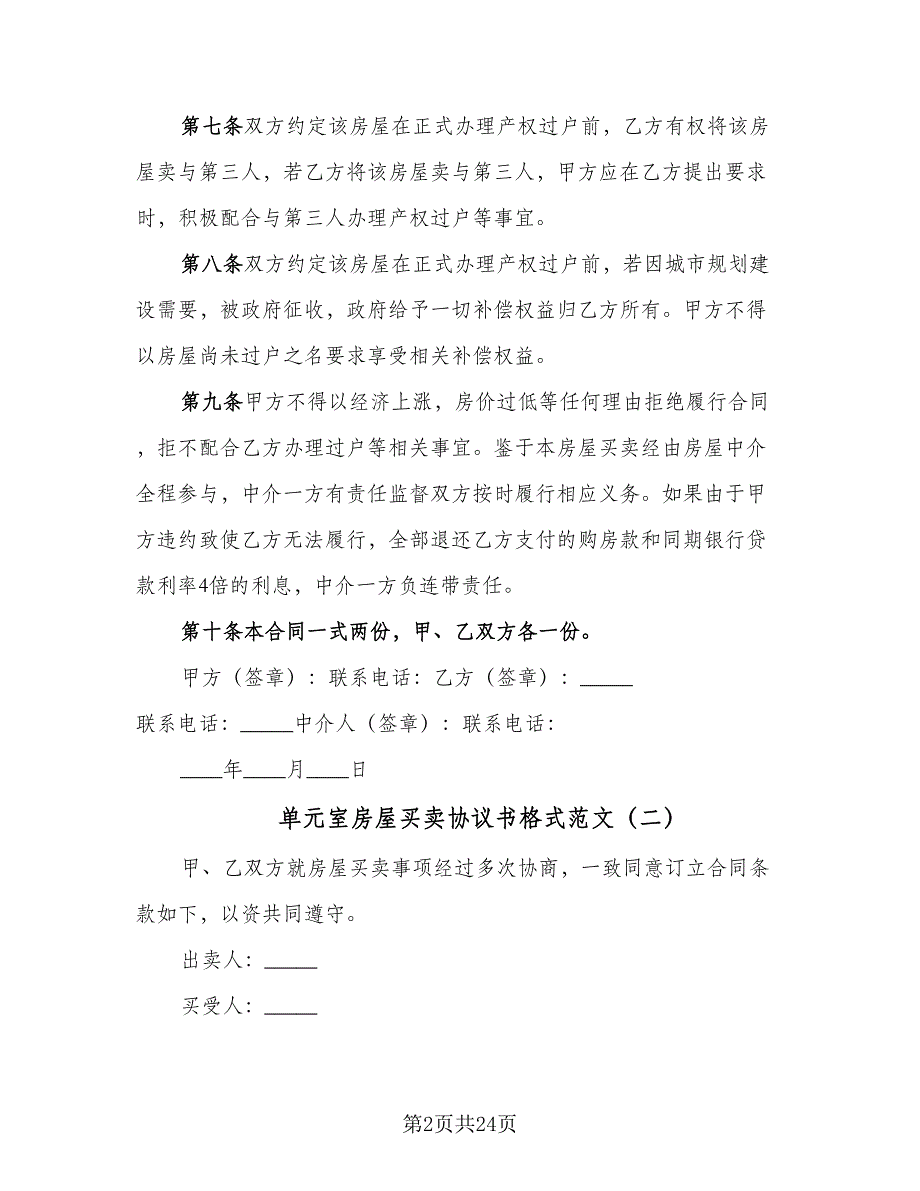 第七条双方约定该房屋在正式办理产权过户前，乙方有权将该房
屋卖与第三人，若乙方将该房屋卖与第三人，甲方应在乙方提出要求
时，积极配合与第三人办理产权过户等事宜。
第八条双方约定该房屋在正式办理产权过户前，若因城市规划建
设需要，被政府征收，政府给予一切补偿权益归乙方所有。甲方不得
以房屋尚未过户之名要求享受相关补偿权益。
第九条甲方不得以经济上涨，房价过低等任何理由拒绝履行合同
，拒不配合乙方办理过户等相关事宜。鉴于本房屋买卖经由房屋中介
全程参与，中介一方有责任监督双方按时履行相应义务。如果由于甲
方违约致使乙方无法履行，全部退还乙方支付的购房款和同期银行贷
款利率4倍的利息，中介一方负连带责任。
第十条本合同一式两份，甲、乙双方各一份。
甲方（签章）：联系电话：乙方（签章）：_____
联系电话：_____中介人（签章）：联系电话：
____年____月____日
单元室房屋买卖协议书格式范文（二）
甲、乙双方就房屋买卖事项经过多次协商，一致同意订立合同条
款如下，以资共同遵守。
出卖人：_____
买受人：_____
第2页共24页